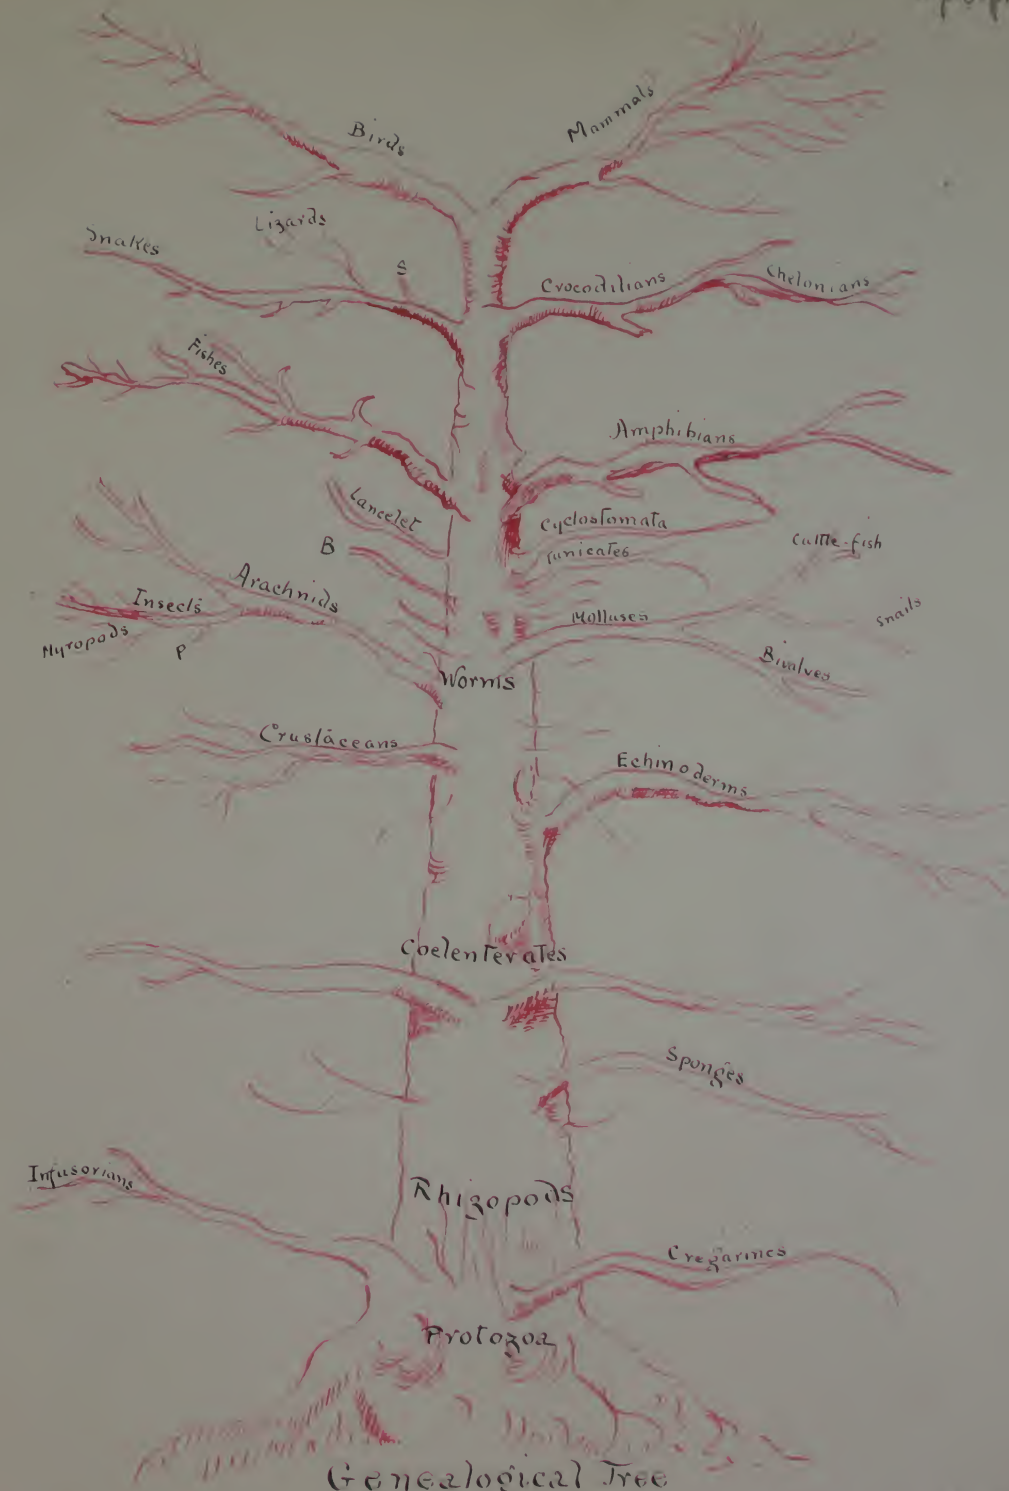 Birds
Mammals
Lizards
Snakes
S
Crocodilians
Chelonians
Fishes
Amphibians
Lancelet
Cyclostomata
B
Tunicates
Cuttle-fish
Arachnids
Insects
Molluscs
Snails
Myropods
P
Bivalves
Worms
Crustaceans
Echinoderms
Coelenterates
Sponges
Infusorians
Rhizopods
Cregarines
Protozoa
Genealogical Tree